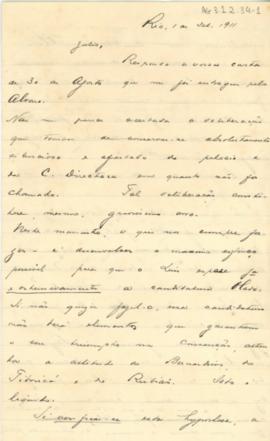 AG3.1.2.34-1
Rio, 1 de Set. 1911
Julio,
Respondo a vossa carta
de 30 de Agosto que me foi entregue pelo
Alvaro.
Não me parece acertada a deliberação
que tomou de conservar-se absolutamente
silencioso e afastado de palacio e
da C. Directora em quanto não fo
chamado. Tal deliberação
mesmo, gravissimo erro.
Neste momento, o que nos cumpre fa-
zer é desenvolver o maximo esforço
possivel para que o Luis
a candidatura
Si não quizer fazel-o, essa candidatura
não terá elementos que garantam
o seu triumpho na convenção
a attitude de Bernardino, de
Tibiriçá e de Rubião. Isto é
liquido.
esta hypothese, a